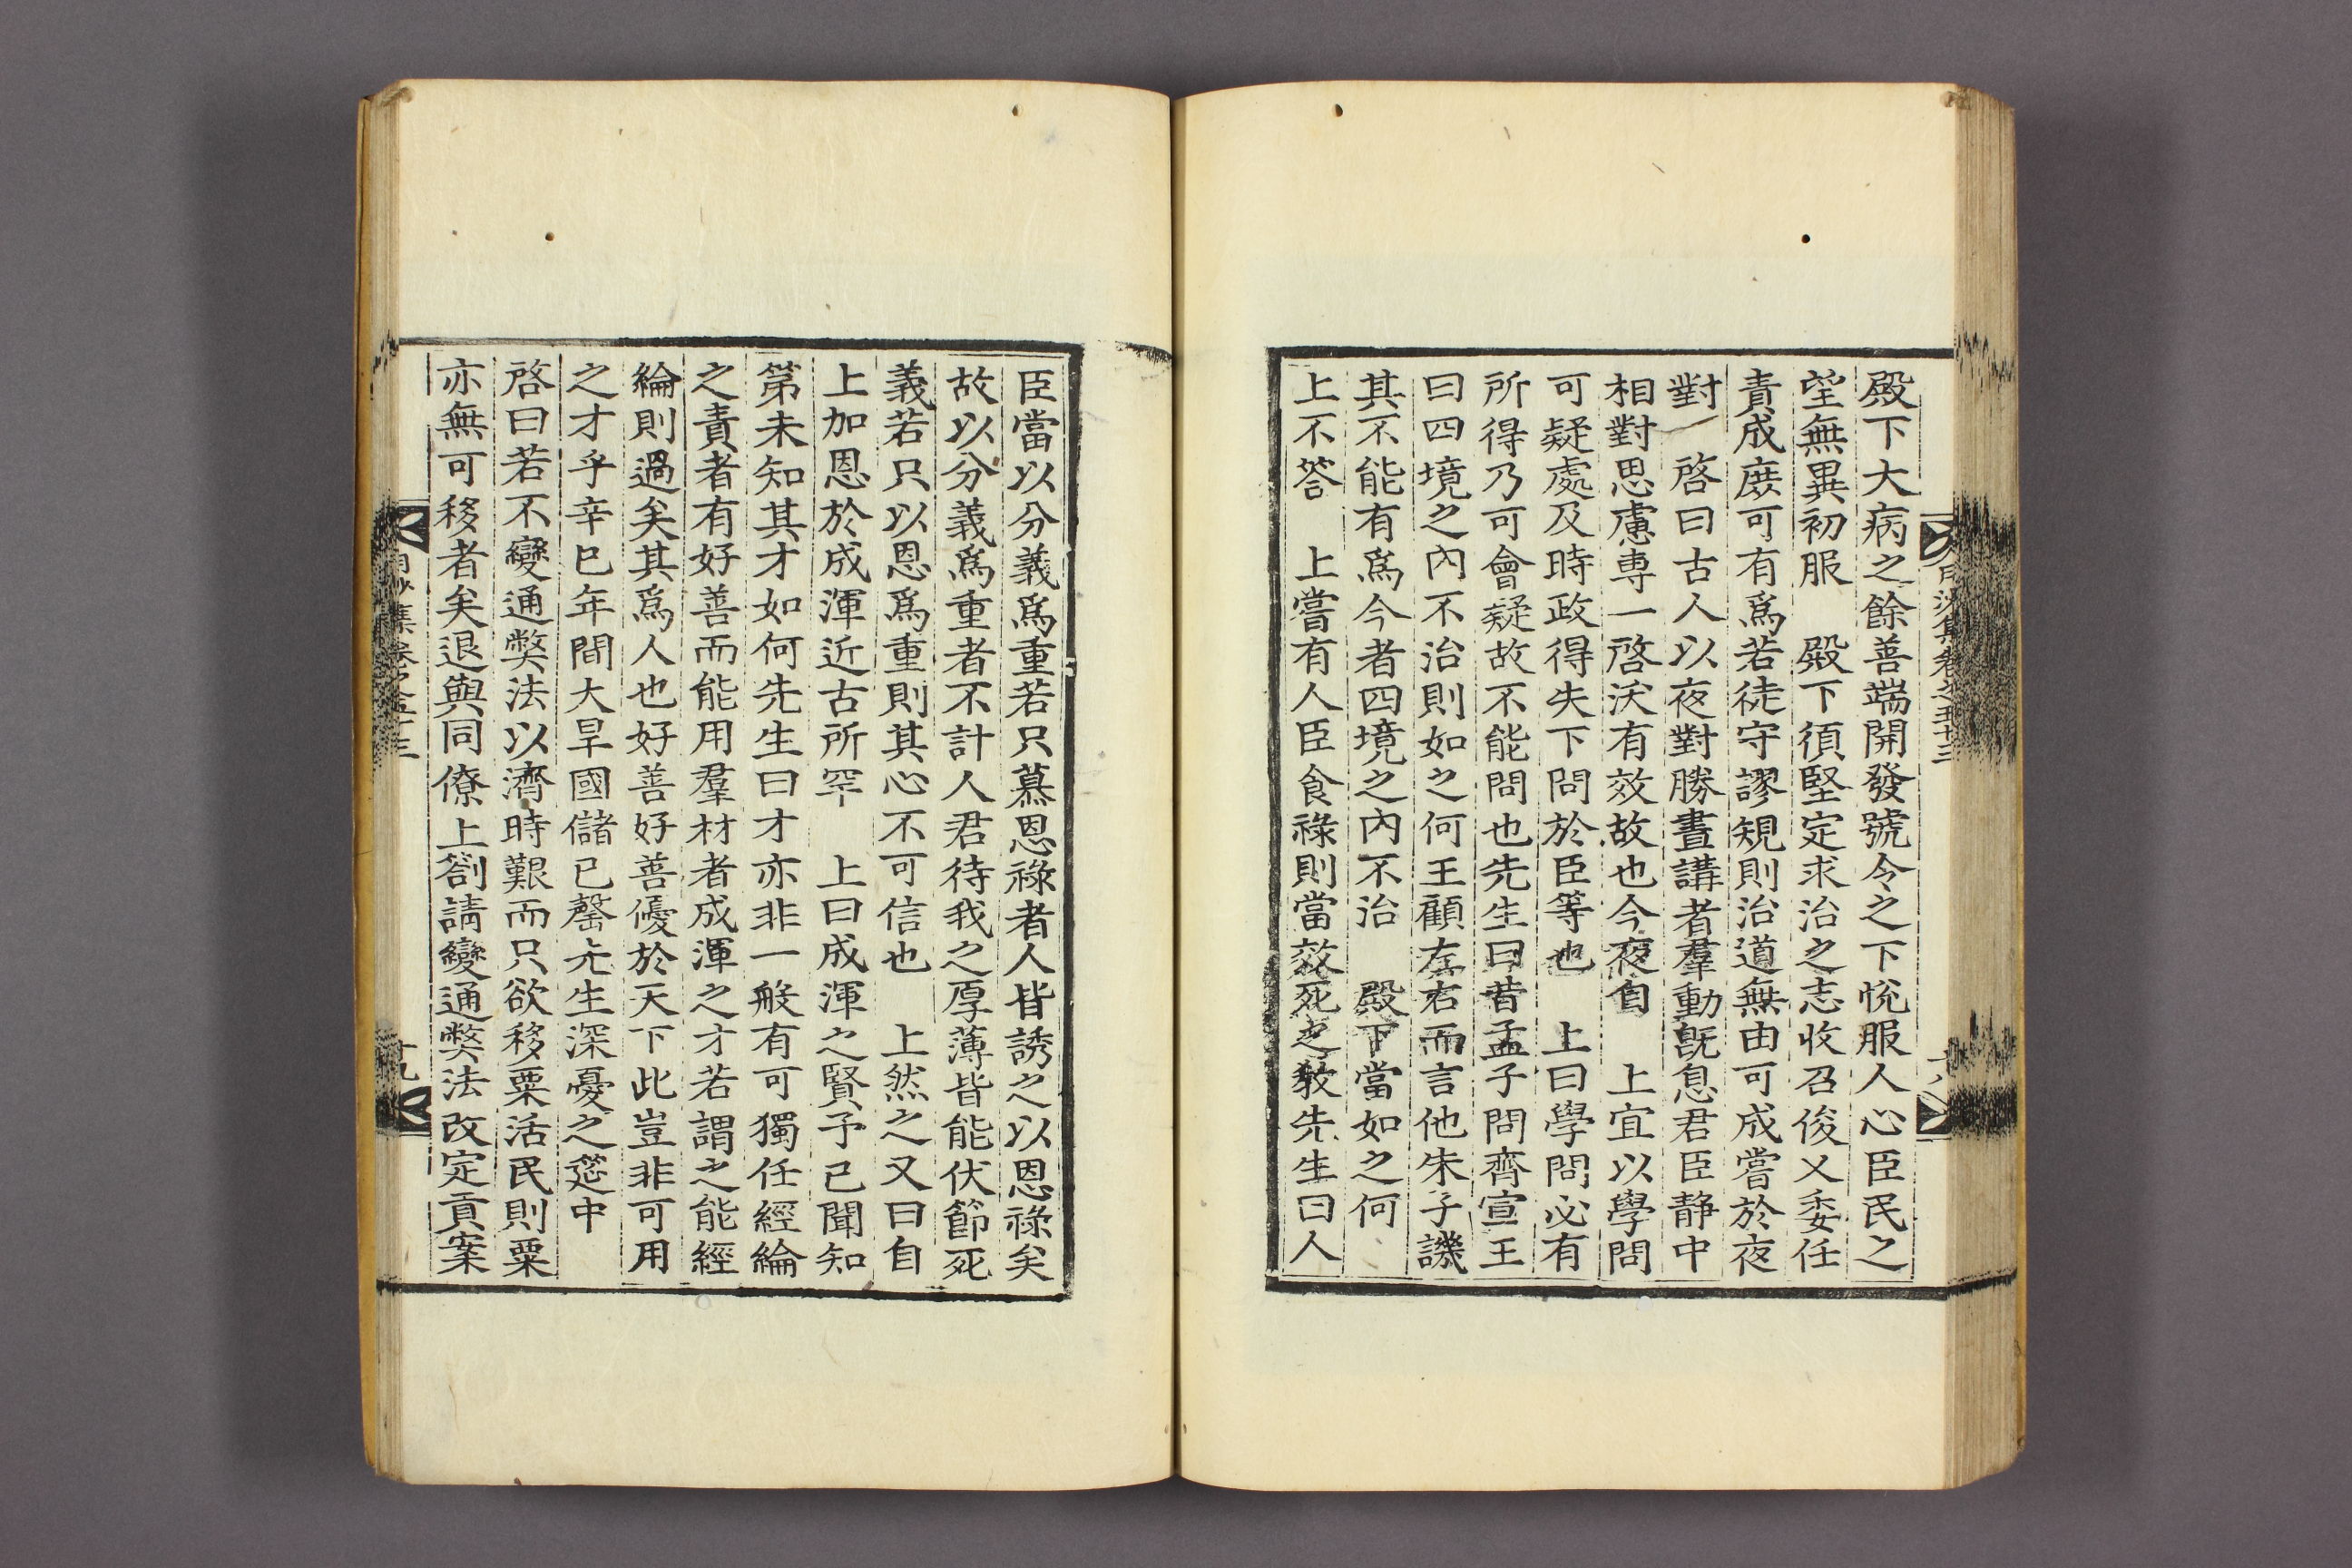 殿下大病之餘善端開發號令之下悅服人心臣民之
望無異初服　殿下須堅定求治之志收召俊乂委任
責成庶可有爲若徒守謬規則治道無由可成嘗於夜
對　啓曰古人以夜對勝晝講者羣動旣息君臣靜中
相對思慮專一啓沃有效故也今夜自　上宜以學問
可疑處及時政得失下問於臣等也　上曰學問必有
所得乃可會疑故不能問也先生曰昔孟子問齊宣王
曰四境之內不治則如之何王顧左右而言他朱子譏
其不能有爲今者四境之內不治　殿下當如之何
上不答　上嘗有人臣食祿則當效死之敎先生曰人
月沙集卷之五十三
臣當以分義爲重若只慕恩祿者人皆誘之以恩祿矣
故以分義爲重者不計人君待我之厚薄皆能伏節死
義若只以恩爲重則其心不可信也　上然之又曰自
上加恩於成渾近古所罕　上曰成渾之賢予已聞知
第未知其才如何先生曰才亦非一般有可獨任經綸
之責者有好善而能用羣材者成渾之才若謂之能經
綸則過矣其爲人也好善好善優於天下此豈非可用
之才乎辛巳年間大旱國儲已罄先生深憂之筵中
啓曰若不變通弊法以濟時艱而只欲移粟活民則粟
亦無可移者矣退與同僚上箚請變通弊法改定貢案
月沙集卷之五十三
十九